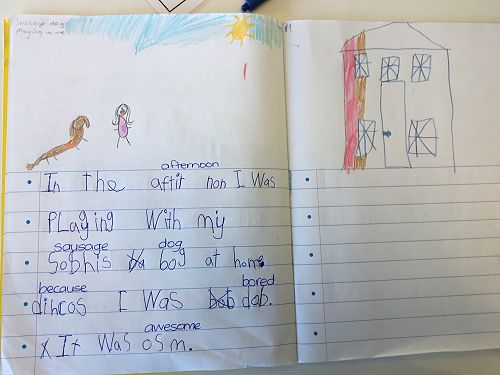 sausage dog
playing in me
afternoon
In the aftir non I Was
PLaying With my
sausage dog
Sobhis bog at home
because bored
dincos I Was bob dob.
awesome
x It Was os m.